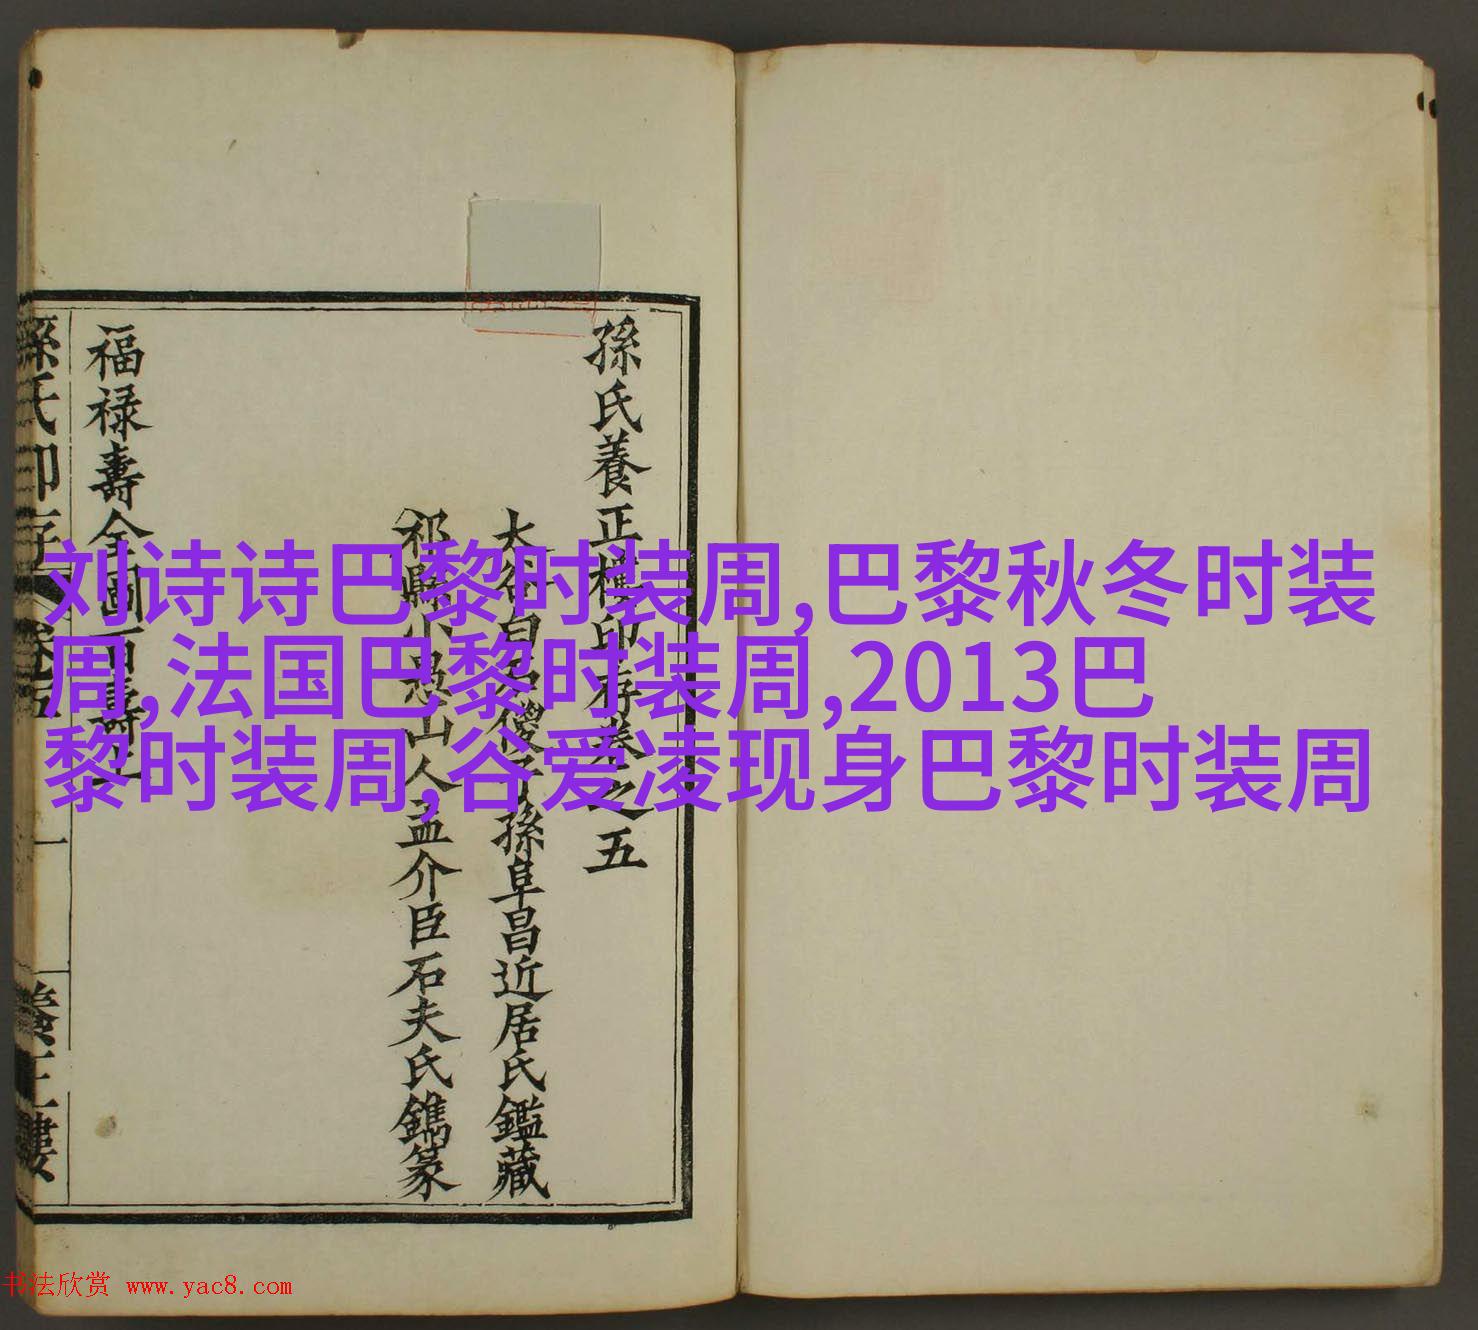 刘诗诗巴黎时装周,巴黎秋冬时装
周,法国巴黎时装周,2013巴
黎时装周,谷爱凌现身巴黎时装周
孫氏養正樓印存卷之五
孫阜昌近居氏鑑藏
祁縣小愚山人孟介臣石夫氏鐫篆
福禄壽全圖百壽
养正樓
书法欣赏 www.yac8.com